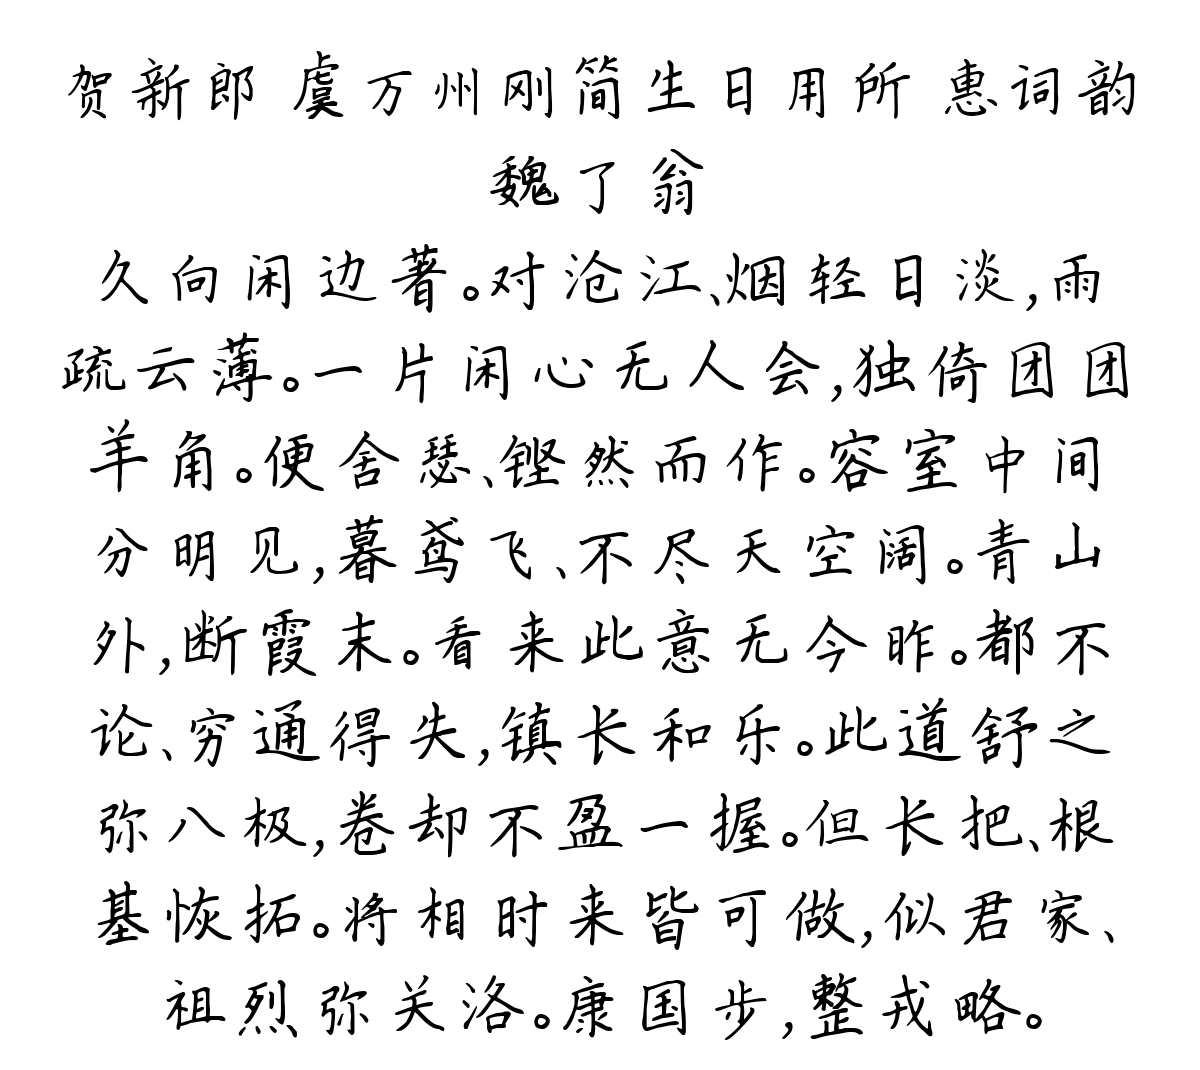 贺新郎 虞万州刚简生日用所 惠词韵
魏了翁
久向闲边著。对沧江、烟轻日淡,雨
疏云薄。一片闲心无人会,独倚团团
羊角。便舍瑟、铿然而作。容室中间
分明见,暮鸢飞、不尽天空阔。青山
外,断霞末。看来此意无今昨。都不
论、穷通得失,镇长和乐。此道舒之
弥八极,卷却不盈一握。但长把、根
基恢拓。将相时来皆可做,似君家、
祖烈弥关洛。康国步,整戎略。